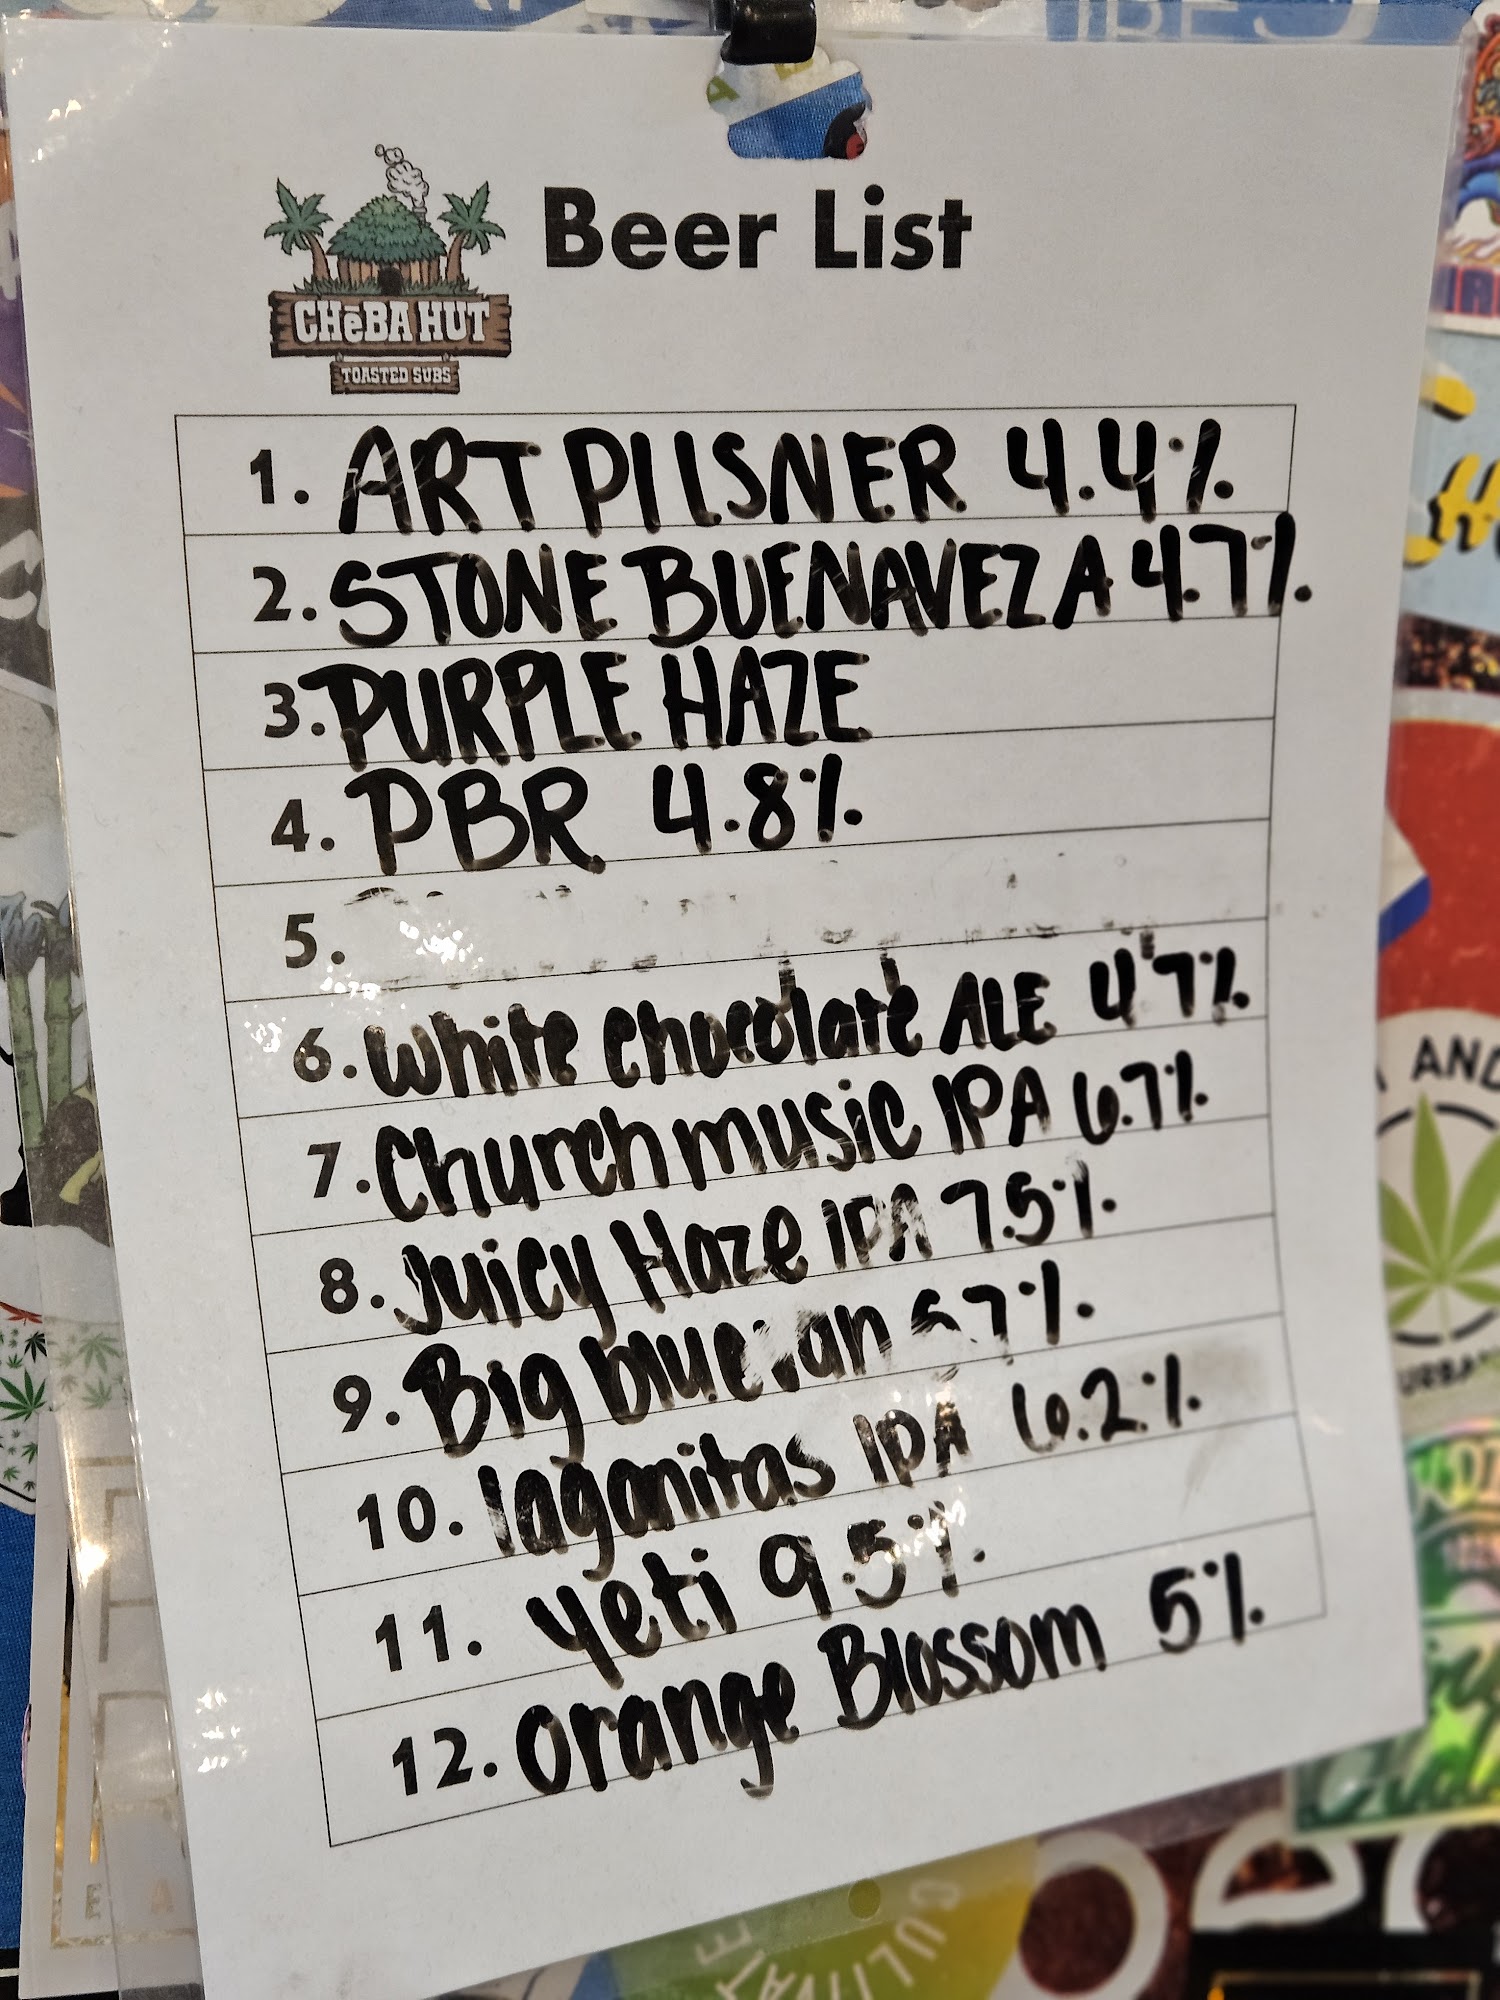 Beer List
CHēBA HUT
TOASTED SUBS
1. ART PILSNER 4.4%
2. STONE BUENAVEZA 4.7%
3. PURPLE HAZE
4. PBR 4.8%
5.
6. White chocolate ALE 4.7%
7. Church music IPA 6.7%
8. Juicy Haze IPA 7.5%
9. Big blue van 5.7%
10. laganitas IPA 6.2%
11. Yeti 9.5%
12. Orange Blossom 5%
AND
CULTIVATE